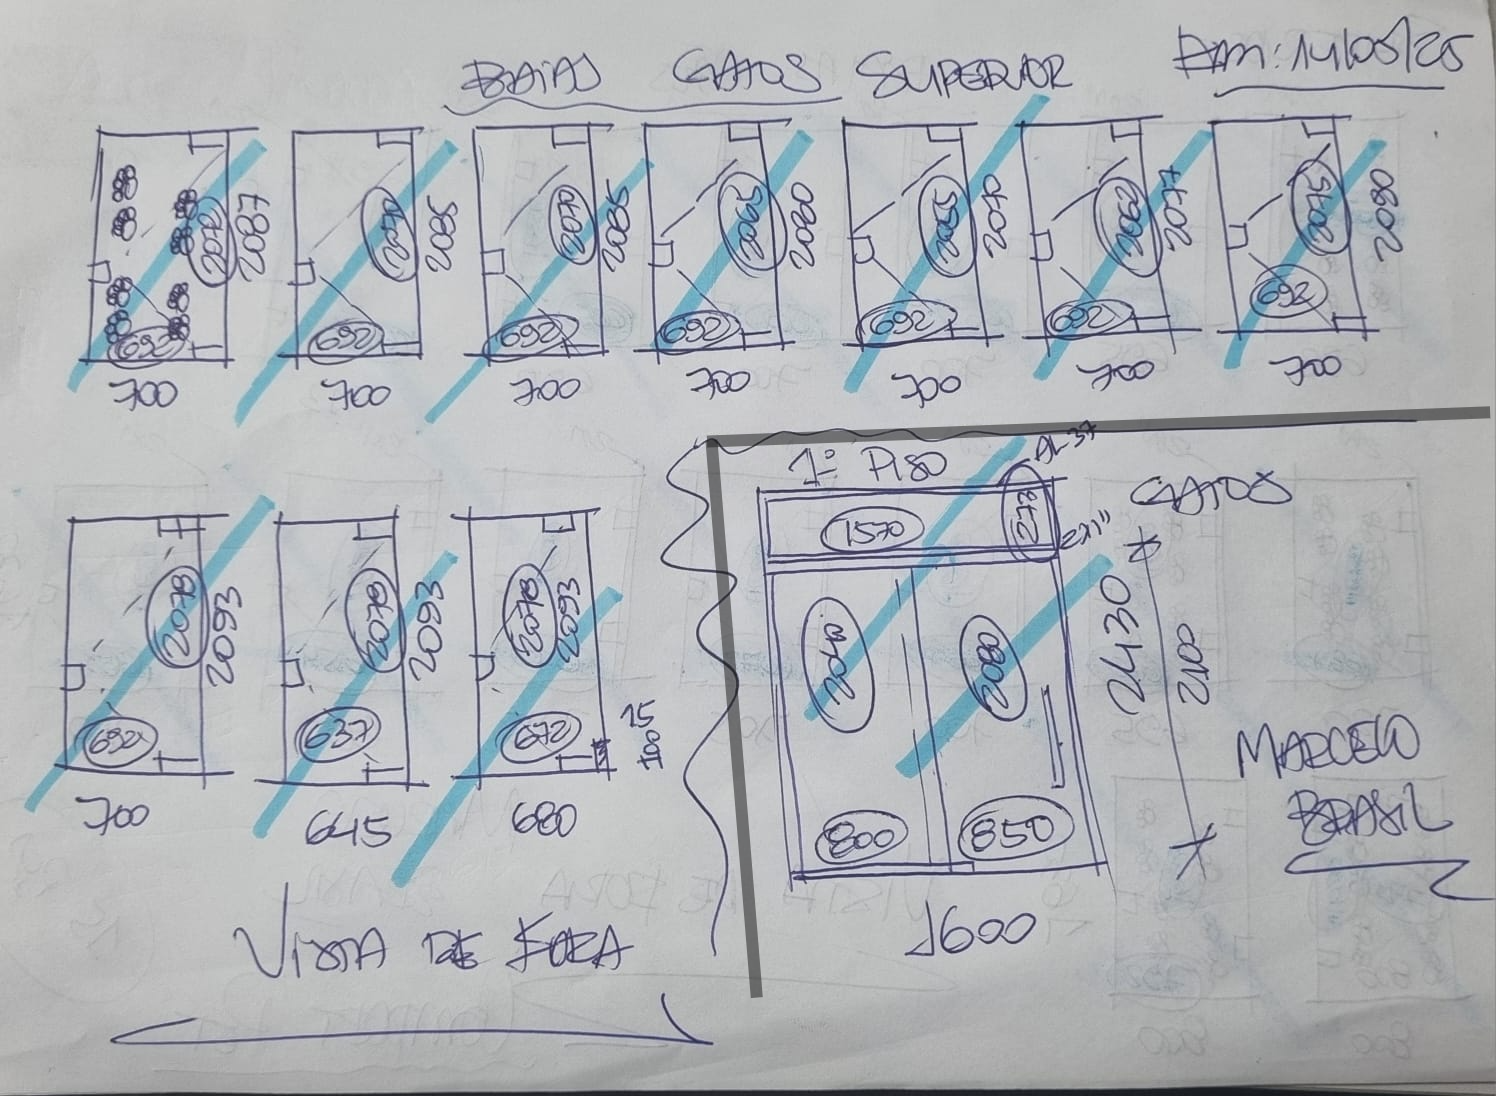 BAIAS GATOS SUPERIOR
2072 2087 692 700
2070 2085 692 700
2070 2085 692 700
2065 2080 692 700
2055 2070 692 700
2062 2077 692 700
692 2080 700
1º PISO
AL-37
GATOS
1570 277 2x1"
2078 2093 692 700
2078 2093 637 645
2078 2093 672 680
15
100
2080
2430
2100
800 850
1600
MARCELO
BRASIL
VISTA DE FORA